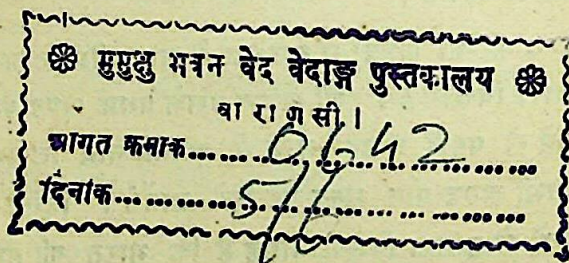 ❀ मुमुक्षु भवन वेद वेदाङ्ग पुस्तकालय ❀
वा रा ण सी ।
आगत क्रमाक......0642......
दिनांक......5/......